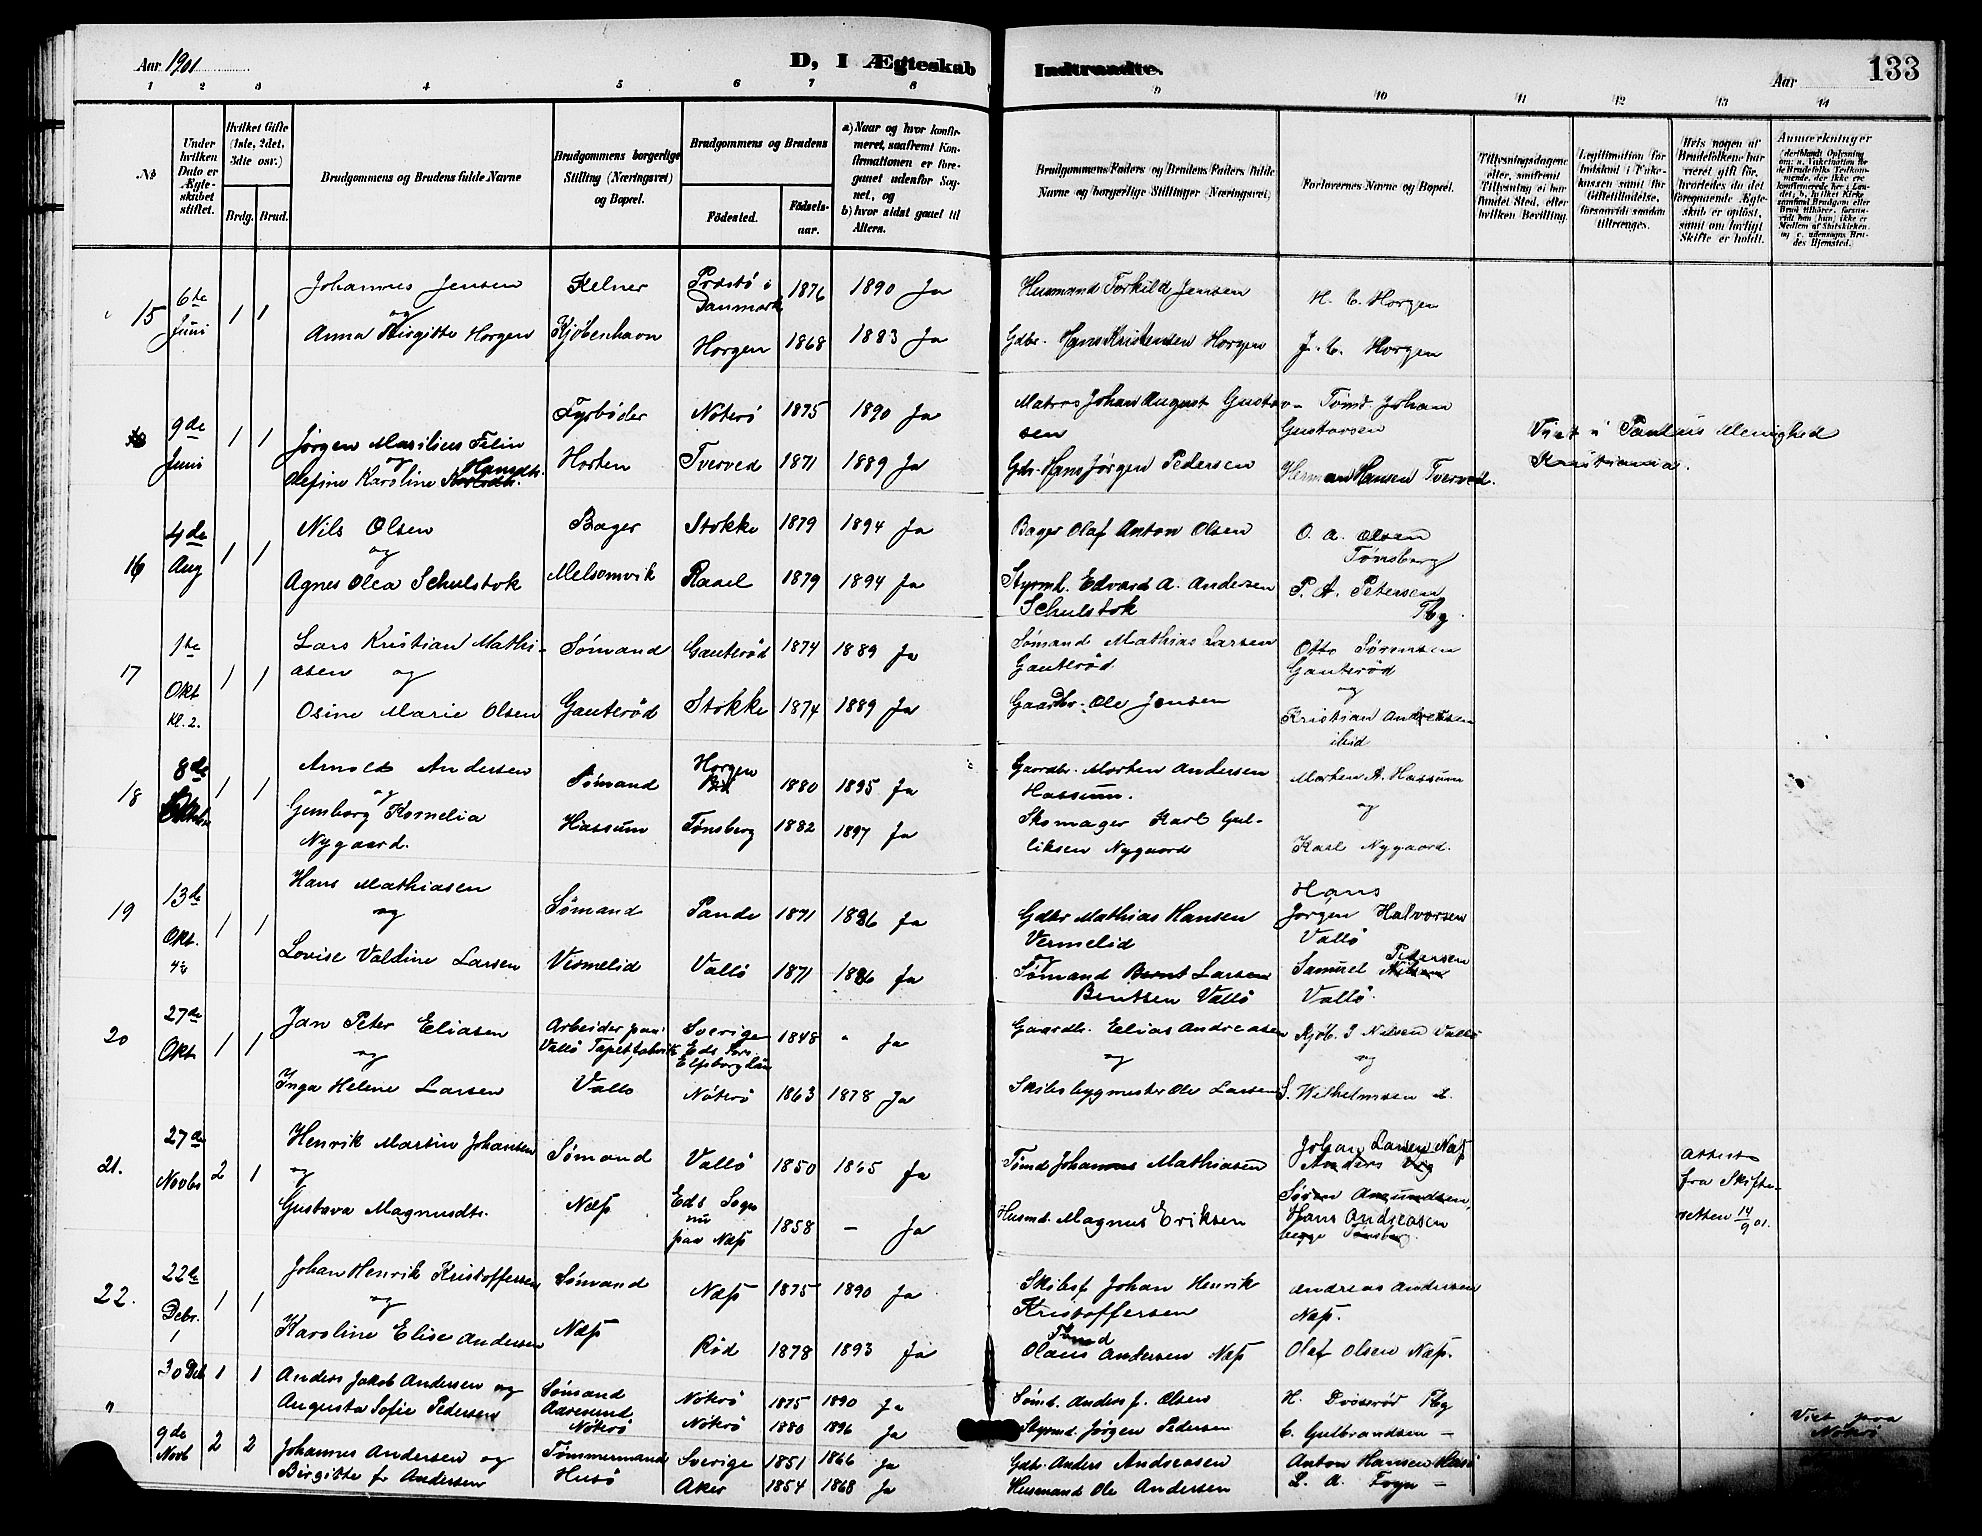 Aar 1901
D, I Ægteskab
Indtraadte.
Aar
133
1 2 3 4 5 6 7 8 9 10 11 12 13 14
No
Under hvilken Dato er Ægteskabet stiftet.
Hvilket Gifte (1ste, 2det, 3die osv.)
Brdg. Brud.
Brudgommens og Brudens fulde Navne
Brudgommens borgerlige Stilling (Næringsvei) og Bopæl.
Brudgommens og Brudens
Födested.
Födselsaar.
a) Naar og hvor konfirmeret, saafremt Konfirmationen er foregaaet udenfor Sognet, og
b) hvor sidst gaaet til Alters.
Brudgommens Faders og Brudens Faders fulde Navne og borgerlige Stillinger (Næringsvei)
Forlovernes Navne og Bopæl.
Tillysningsdagene eller, saafremt Tillysning ei har fundet Sted, efter hvilken Bevilling.
Legitimation for Indskud i Enkekassen samt for Giftetilladelse, forsaavidt saadan tiltrænges.
Hvis nogen af Brudefolkene har været gift før, hvorledes da det foregaaende Ægteskab er opløst, samt om lovligt Skifte er holdt.
Anmærkninger
15 6te Juni 1 1
Johannes Jensen og Anna Birgitte Horgen
Kelner Kjøbenhavn
Præstö i Danmark 1876 1890 Ja
Horgen 1868 1883 Ja
Husmand Torkild Jensen
Gdbr. Hans Kristensen Horgen
H. C. Horgen
J. C. Horgen
9de Juni 1 1
Jørgen Marilius Filin og Olefine Karoline Hansdtr.
Fyrbøder Horten
Nöterö 1875 1890 Ja
Tverved 1871 1889 Ja
Matros Johan August Gustavsen
Gdbr. Hans Jørgen Pedersen
Tømd. Johan Gustavsen
Herman Hansen Tverved.
Viet i Paulus Menighed Kristiania.
16 4de Aug 1 1
Nils Olsen og Agnes Olea Schulstok
Bager Melsomvik
Stokke 1879 1894 Ja
Rasel 1879 1894 Ja
Bager Olaf Anton Olsen
Styrm. Edvard A. Andersen Schulstok
O. A. Olsen Tønsberg
P. A. Petersen Tbg
17 1te Okt Kl. 2. 1 1
Lars Kristian Mathiasen og Osine Marie Olsen
Sømand Gauterød
Gauterød 1874 1889 Ja
Stokke 1874 1889 Ja
Sømand Mathias Larsen Gauterød
Gaardbr. Ole Jensen
Otto Sørensen Gauterød og
Kristian Andersen ibid
18 8de Oktober 1 1
Arnold Andersen og Gunborg Kornelia Nygaard.
Sømand Hassum
Horgen 1880 1895 Ja
Tønsberg 1882 1897 Ja
Gaardbr. Morten Andersen Hassum.
Skomager Karl Gulliksen Nygaard
Morten A. Hassum og
Karl Nygaard.
19 13de Okt. 1 1
Hans Mathiasen og Lovise Valdine Larsen
Sømand Vermelid
Sande 1871 1886 Ja
Vallö 1871 1886 Ja
Gdbr Mathias Hansen Vermelid
Sømand Bernt Larsen Bentsen Vallö
Hans Jørgen Halvorsen Vallö
Samuel Pedersen Vallö.
20 27de Okt 1 1
Jan Peter Eliasen og Inga Helene Larsen
Arbeider paa Vallö Tapetfabrik Vallö
Sverige Eds Sogn Elfsborg län 1848 " Ja
Nöterö 1863 1878 Ja
Gaardb. Elias Andreasen og
Skibsbygmester Ole Larsen
Kjøb. J Nilsen Vallö og
S. Wilhelmsen d.
21. 27de Novbr 2 1
Henrik Martin Johansen og Gustava Magnusdtr.
Sømand Næss
Vallö 1850 1865 Ja
Eds Sogn nu paa Næss 1858 — Ja
Tømd Johannes Mathiasen
Husmd. Magnus Eriksen
Johan Larsen Næss
Søren Amundsen, Hans Andreasen begge Tønsberg.
Attest fra Skifteretten 14/9 01.
22. 22de Debr. 1 1
Johan Henrik Kristoffersen og Karoline Elise Andersen
Sømand Næss
Næss 1875 1890 Ja
Röd 1878 1893 Ja
Skibsf. Johan Henrik Kristoffersen
Tømd Olaus Andersen Næss
Andreas Andersen Næss.
Olaf Olsen Næss.
" 30 Deb 1 1
Anders Jakob Andersen og Augusta Sofie Pedersen
Sømand Aarøsund Nöterö
Nöterö 1875 1890 Ja
Nöterö 1880 1896 Ja
Sømd. Anders f. Olsen
Styrmd. Jørgen Pedersen
C. Gulbrandsen —
Viet paa Nöterö
9de Novb 2 2
Johannes Andersen og Birgitte f. Andersen
Tømmermand Husö
Sverige 1851 1866 Ja
Aker 1854 1868 Ja
Gdbr. Anders Andreasen
Husmand Ole Andersen
Anton Hansen Husö
L. A. Foyn —